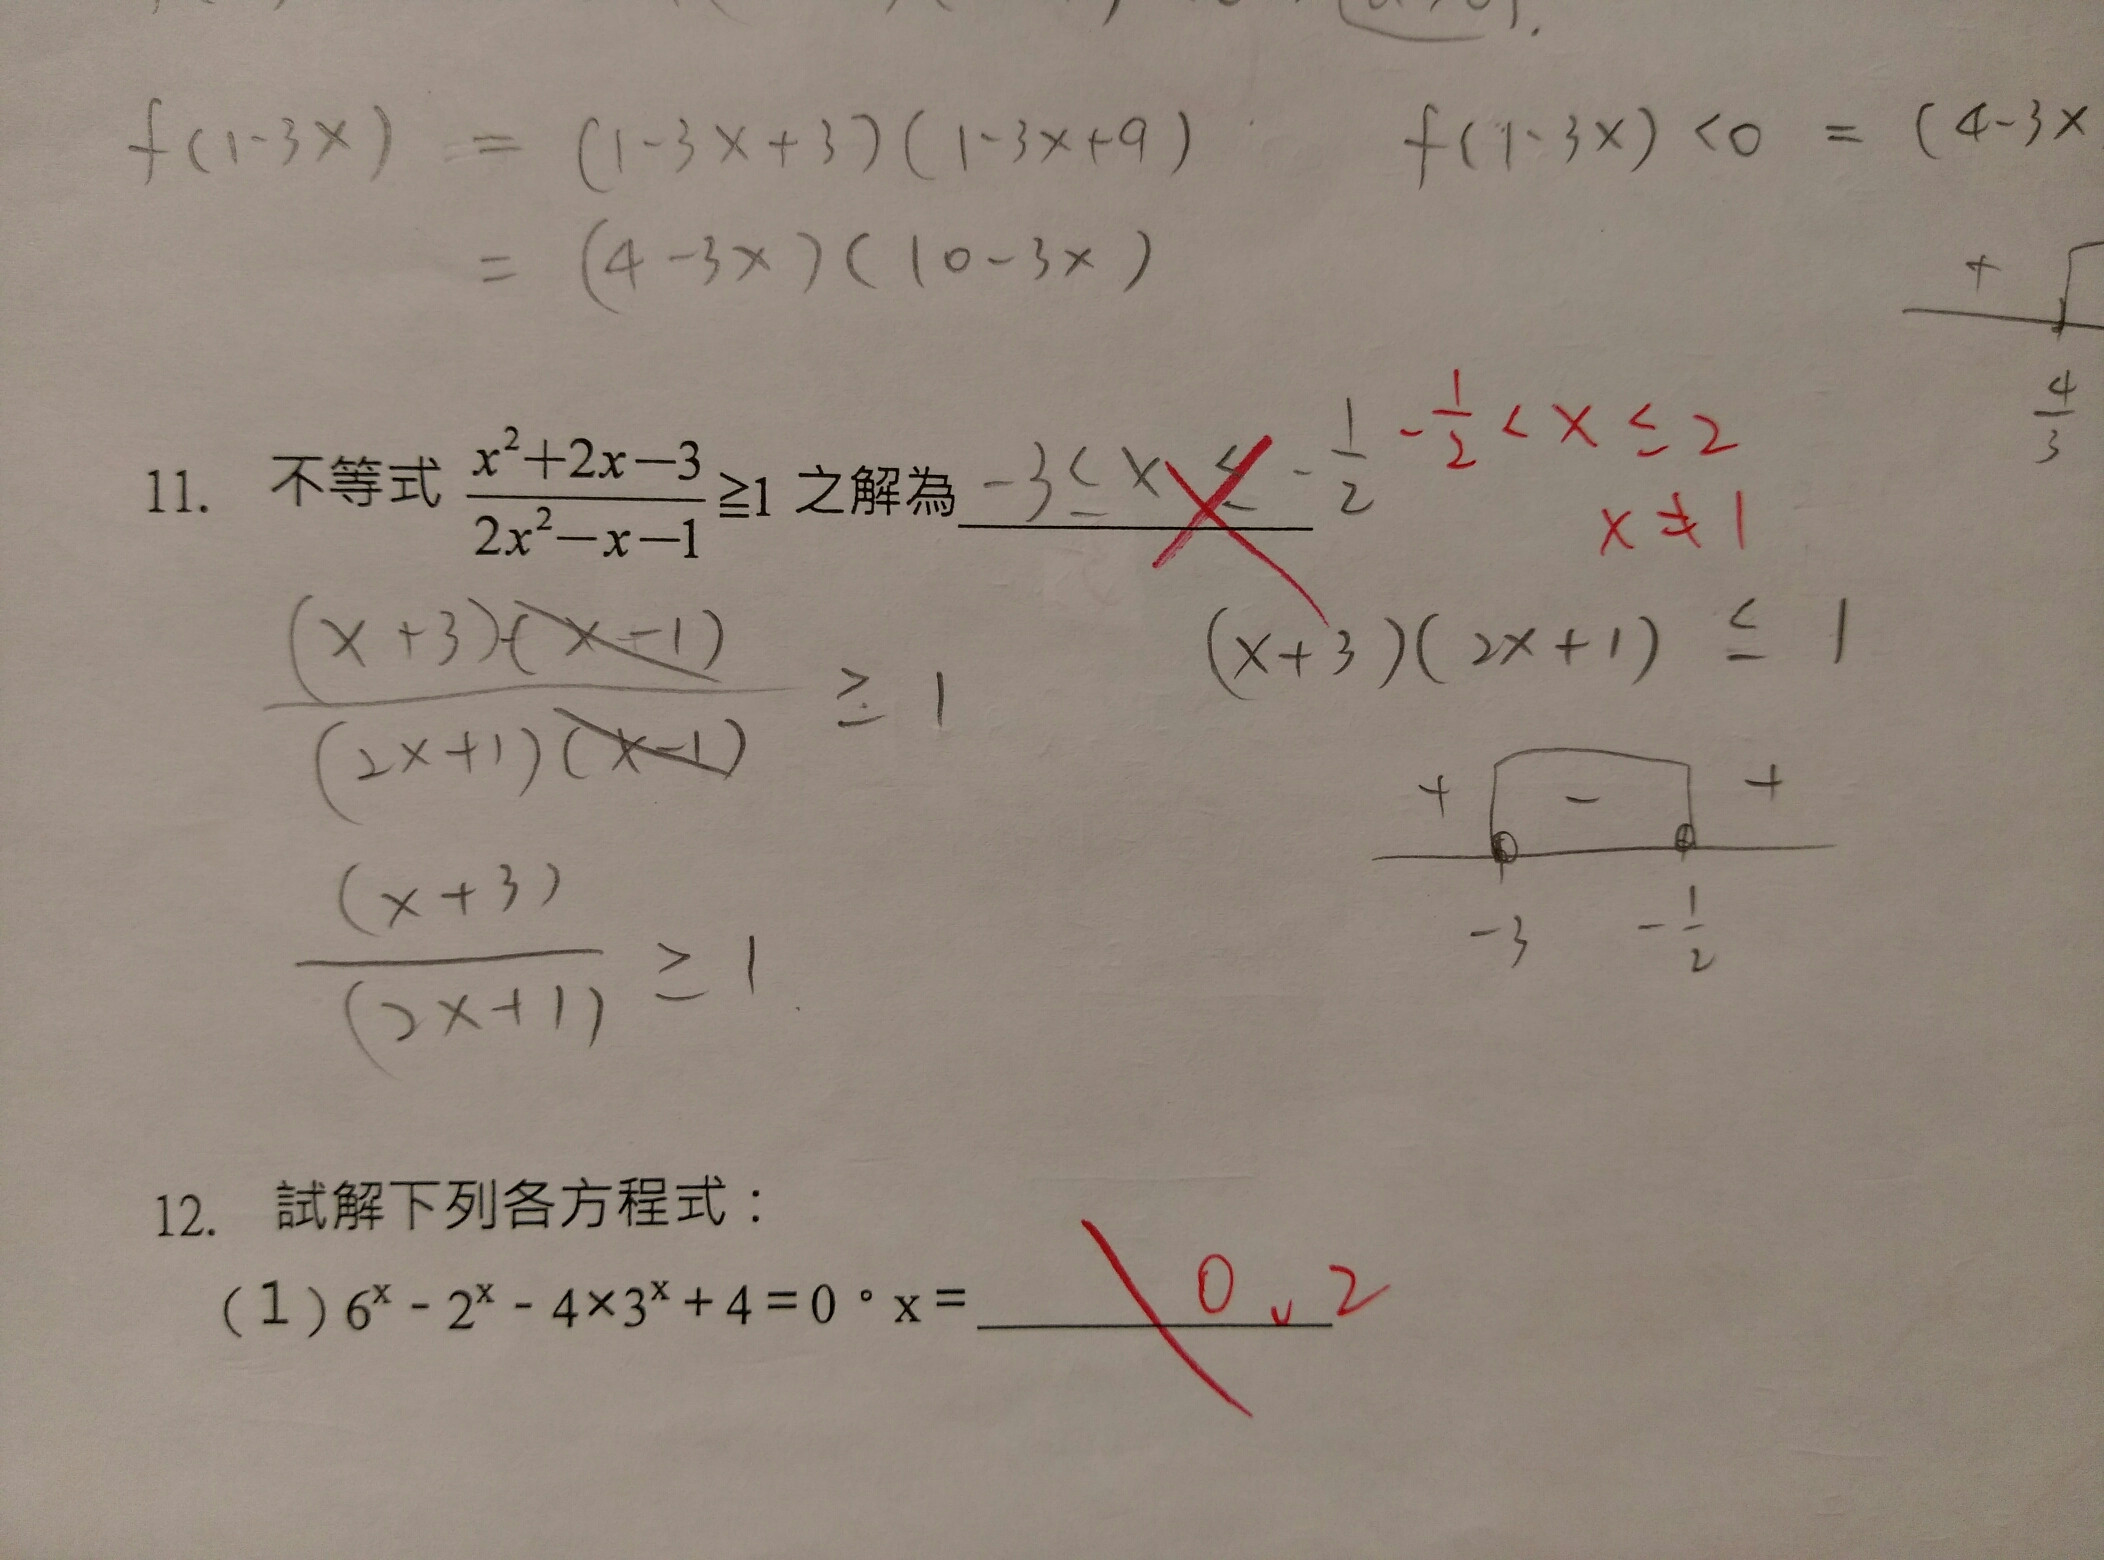 f(1-3x) = (1-3x+3)(1-3x+9)
= (4-3x)(10-3x)
f(1-3x) <0 = (4-3x
+
4/3
11. 不等式 (x²+2x-3)/(2x²-x-1) ≧1 之解為 -3≤x≤-1/2
-1/2 < x ≤ 2
x≠1
(x+3)(x-1)/(2x+1)(x-1) ≥ 1
(x+3)(2x+1) ≤ 1
+ - +
-3 -1/2
(x+3)/(2x+1) ≥ 1
12. 試解下列各方程式：
(1) 6ˣ - 2ˣ - 4×3ˣ + 4 = 0。x = 0、2